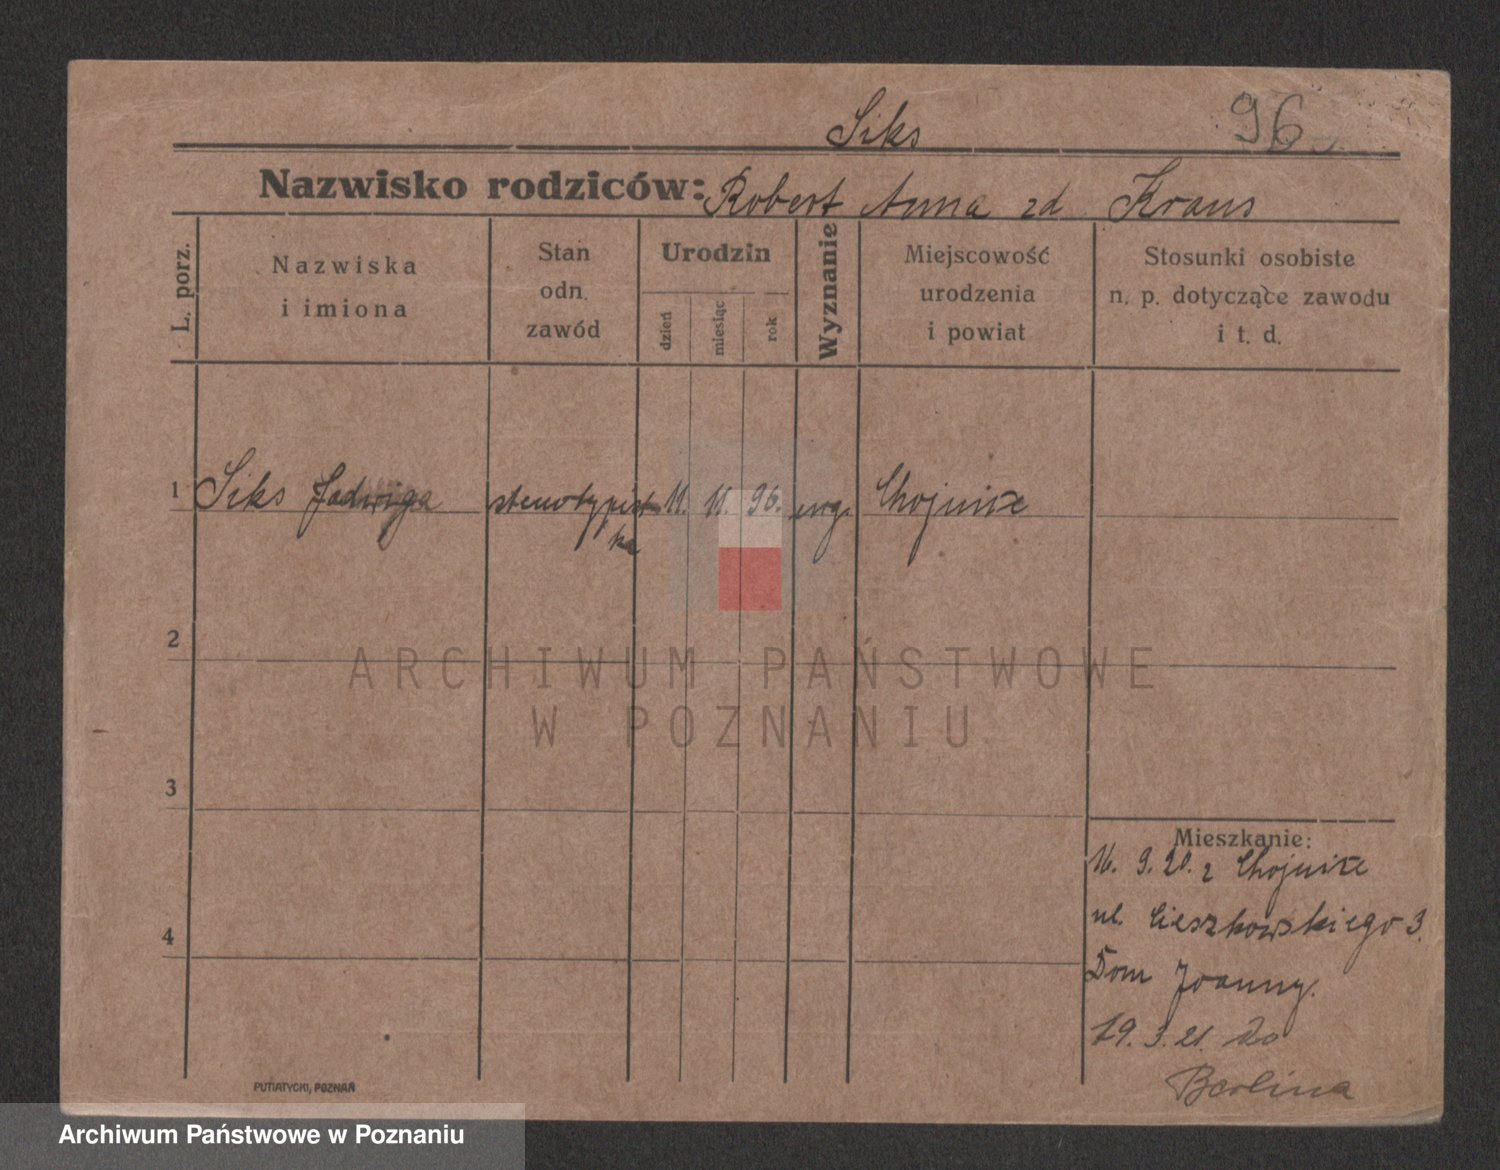 Siks 96
Nazwisko rodziców: Robert Anna zd Kraus
L. porz.
Nazwiska
i imiona
Stan
odn.
zawód
Urodzin
dzień
miesiąc
rok
Wyznanie
Miejscowość
urodzenia
i powiat
Stosunki osobiste
n. p. dotyczące zawodu
i t. d.
1 Siks Jadwiga stenotypist 11. 11. 96. ewg. Chojnice
ka
2
ARCHIWUM PAŃSTWOWE
W POZNANIU
3
Mieszkanie:
16. 9. 20. z Chojnice
ul. Cieszkowskiego 3.
4
Dom Joanny.
19. 3. 21. do
Berlina
PUTIATYCKI, POZNAŃ
Archiwum Państwowe w Poznaniu